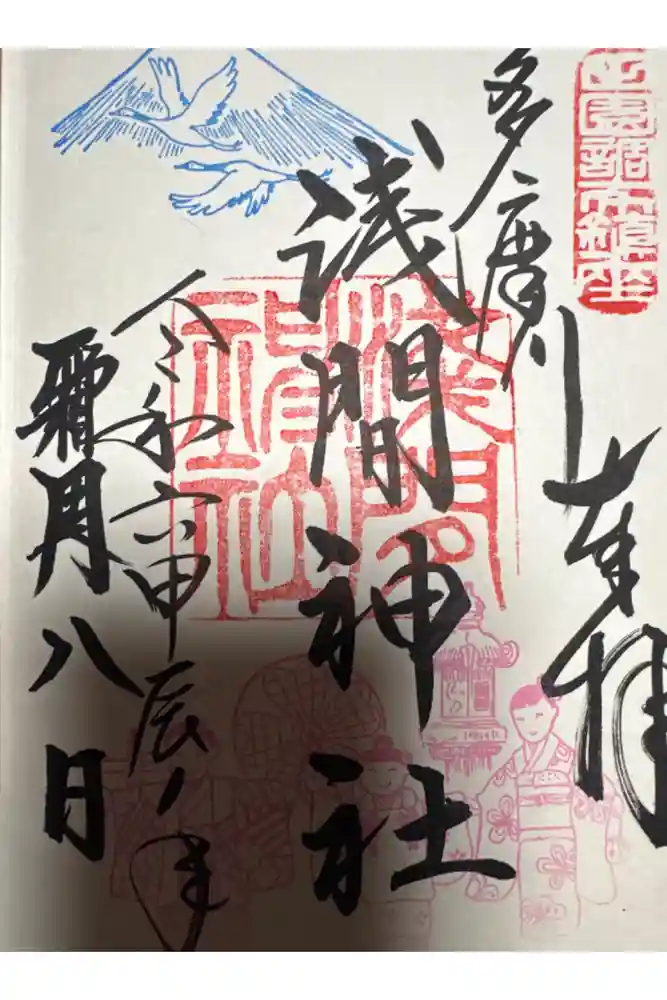 田園調布鎮座
奉拝
多摩川
浅間神社
淺間神社
令和六甲辰ノ年
霜月八日